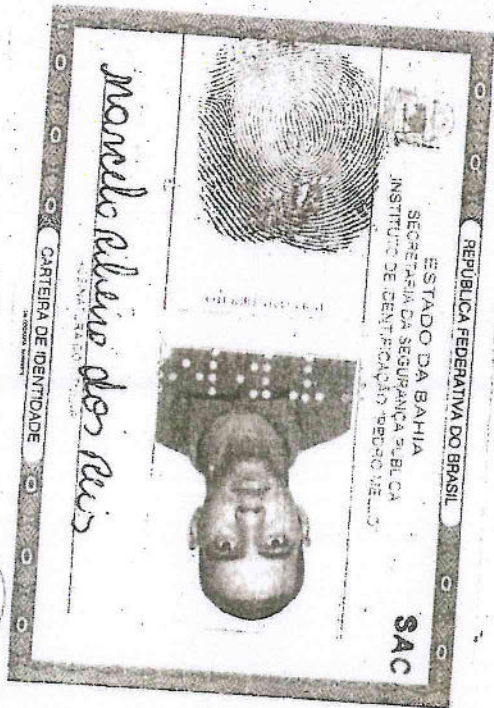 REPÚBLICA FEDERATIVA DO BRASIL
ESTADO DA BAHIA
SECRETARIA DA SEGURANÇA PÚBLICA
INSTITUTO DE IDENTIFICAÇÃO "PEDRO MELLO"
SAC
Marcelo Ribeiro dos Reis
CARTEIRA DE IDENTIDADE